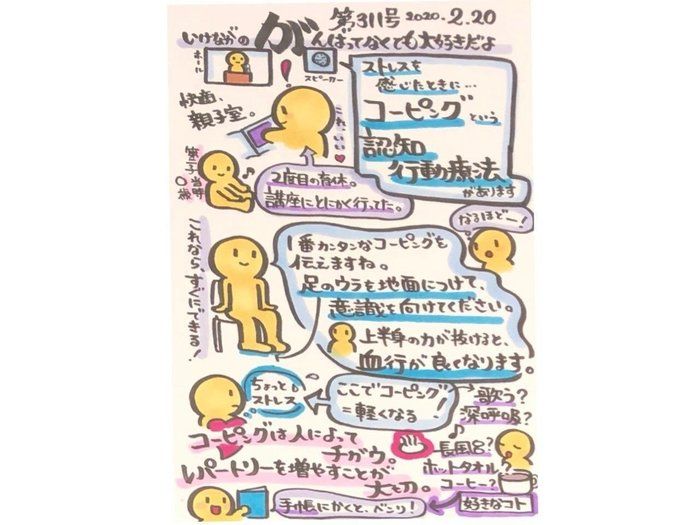 第311号 2020.2.20
いけながの がんばってなくても大好きだよ
ホール
スピーカー
快適、
親子室。
これ、いい♥
第一子当時
0歳
2度目の育休。
講座にとにかく行ってた。
ストレスを
感じたときに…
コーピングという
認知
行動療法
があります
なるほどー!
これなら、すぐにできる!
1番カンタンなコーピングを
伝えますね。
足のウラを地面につけて、
意識を向けてください。
上半身の力が抜けると、
血行が良くなります。
ちょっと
ストレス
ここでコーピング!
=軽くなる
歌う?
深呼吸?
長風呂?
ホットタオル?
コーヒー?
好きなコト
コーピングは人によって
チガウ。
レパートリーを増やすことが
大切。
手帳にかくと、ベンリ!